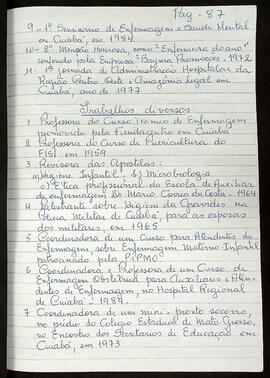 Pág - 87
9 - 1º Seminário de Enfermagem e Saúde Mental
em Cuiabá, em 1984
10 - 2ª Menção Honrosa, como "Enfermeira do ano"
conferido pela Empresa Bagma Promoções - 1972
11 - 1ª jornada de Administração Hospitalar da
Região Centro Oeste e Amazônia Legal em
Cuiabá, ano de 1977
Trabalhos diversos
1 Professora do Curso Técnico de Enfermagem
promovido pela Fundacentro em Cuiabá
2 Professora do Curso de Puericultura do
em 1959
3 Revisora das Apostilas:
a) Higiene Infantil b) Microbiologia
c) Ética profissional da Escola de Auxiliar
de enfermagem Dr. Mário Corrêa da Costa - 1964
4 Palestrante sobre Higiene da Gravidez na
Polícia Militar de Cuiabá, para as esposas
dos militares, em 1965
5 Coordenadora de um Curso para Atendentes de
Enfermagem, sobre Enfermagem Materno Infantil
patrocinado pela PIPMO
6 Coordenadora e Professora de um Curso de
Enfermagem Obstétrica para Auxiliares e Aten-
dentes de Enfermagem, no Hospital Regional
de Cuiabá - 1984.
7 Coordenadora de um mini-pronto socorro,
no prédio do Colégio Estadual de Mato Grosso,
no Encontro dos Secretários de Educação em
Cuiabá, em 1973